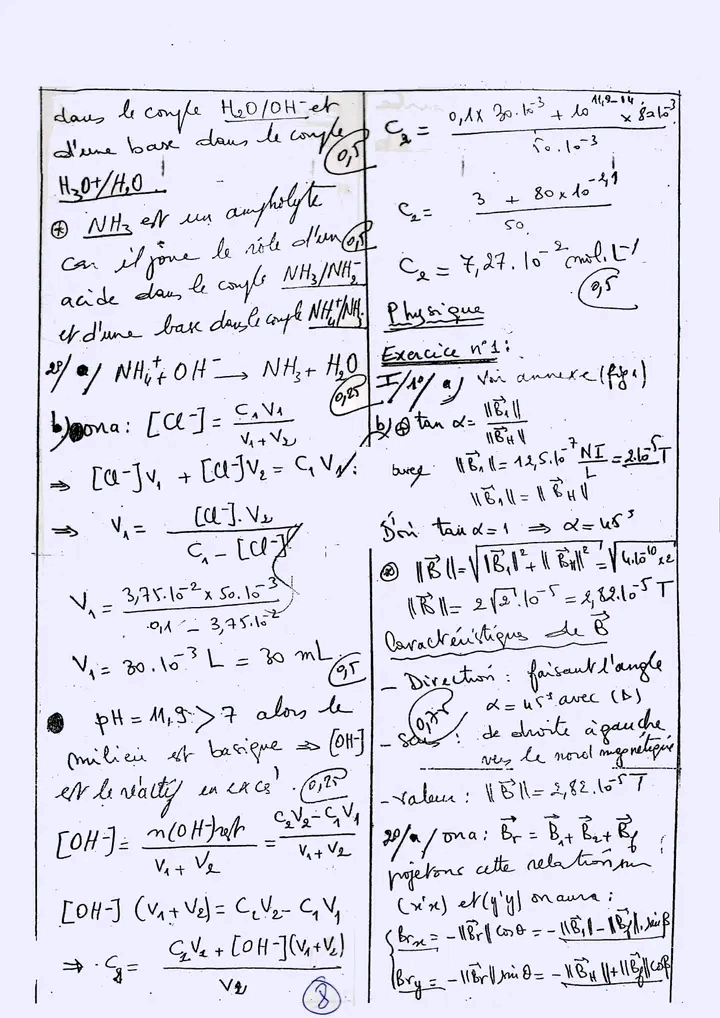 dans le couple H₂O/OH⁻ et
d'une base dans le couple
H₃O⁺/H₂O
0,5
⊛ NH₃ est un ampholyte
car il joue le rôle d'un
0,5
acide dans le couple NH₃/NH₂⁻
et d'une base dans le couple NH₄⁺/NH₃
2°/ a/ NH₄⁺ + OH⁻ → NH₃ + H₂O
0,25
b) ona : [Cl⁻] = C₁V₁ / (V₁ + V₂)
⇒ [Cl⁻]V₁ + [Cl⁻]V₂ = C₁V₁
⇒ V₁ = [Cl⁻].V₂ / (C₁ - [Cl⁻])
V₁ = 3,75.10⁻² × 50.10⁻³ / (0,1 - 3,75.10⁻²)
V₁ = 30.10⁻³ L = 30 mL
0,5
pH = 11,9 > 7 alors le
milieu est basique ⇒ [OH⁻]
est le réactif en excés.
0,25
[OH⁻] = n(OH⁻)rest / (V₁ + V₂) = (C₂V₂ - C₁V₁) / (V₁ + V₂)
[OH⁻] (V₁ + V₂) = C₂V₂ - C₁V₁
⇒ C₂ = (C₁V₁ + [OH⁻](V₁ + V₂)) / V₂
C₂ = (0,1 × 30.10⁻³ + 10^(11,9-14) × 80.10⁻³) / 50.10⁻³
C₂ = (3 + 80 × 10^(-2,1)) / 50
C₂ = 7,27.10⁻² mol.L⁻¹
0,5
Physique
Exercice n°1 :
I/ 1°/ a) Voir annexe (fig 1)
b) ⊛ tan α = ||B⃗₁|| / ||B⃗H||
avec ||B⃗₁|| = 12,5.10⁻⁷ NI/L = 2.10⁻⁵ T
||B⃗₁|| = ||B⃗H||
D'où tan α = 1 ⇒ α = 45°
⊛ ||B⃗|| = √(||B⃗₁||² + ||B⃗H||²) = √(4.10⁻¹⁰ × 2)
||B⃗|| = 2√2.10⁻⁵ = 2,82.10⁻⁵ T
Caractéristiques de B⃗
- Direction : faisant l'angle
α = 45° avec (Δ)
0,75
- Sens : de droite à gauche
vers le nord magnétique
- Valeur : ||B⃗|| = 2,82.10⁻⁵ T
2°/ a/ ona : B⃗r = B⃗₁ + B⃗₂ + B⃗f
projetons cette relation sur
(x'x) et (y'y) on aura :
{ Brx = -||B⃗r|| cos θ = -||B⃗₁|| - ||B⃗f||.sin β
Bry = -||B⃗r|| sin θ = -||B⃗H|| + ||B⃗f|| cos β
8